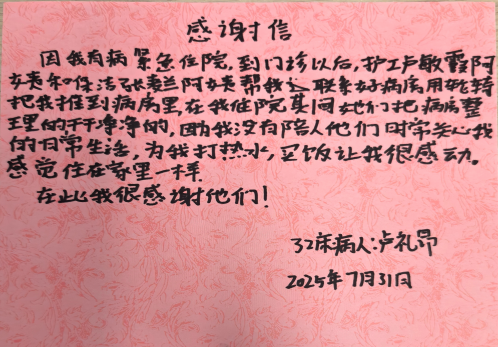 感谢信
因我有病紧急住院，到门诊以后，护工卢敏霞阿
姨和保洁张兰阿姨帮我联系好病房用轮椅
把我推到病房里，在我住院其间她们把病房整
理的干干净净的，因为我没有陪人他们时常关心我
的日常生活，为我打热水，买饭让我很感动。
感觉住在家里一样
在此我很感谢他们！
32床病人：卢礼昂
2025年7月31日